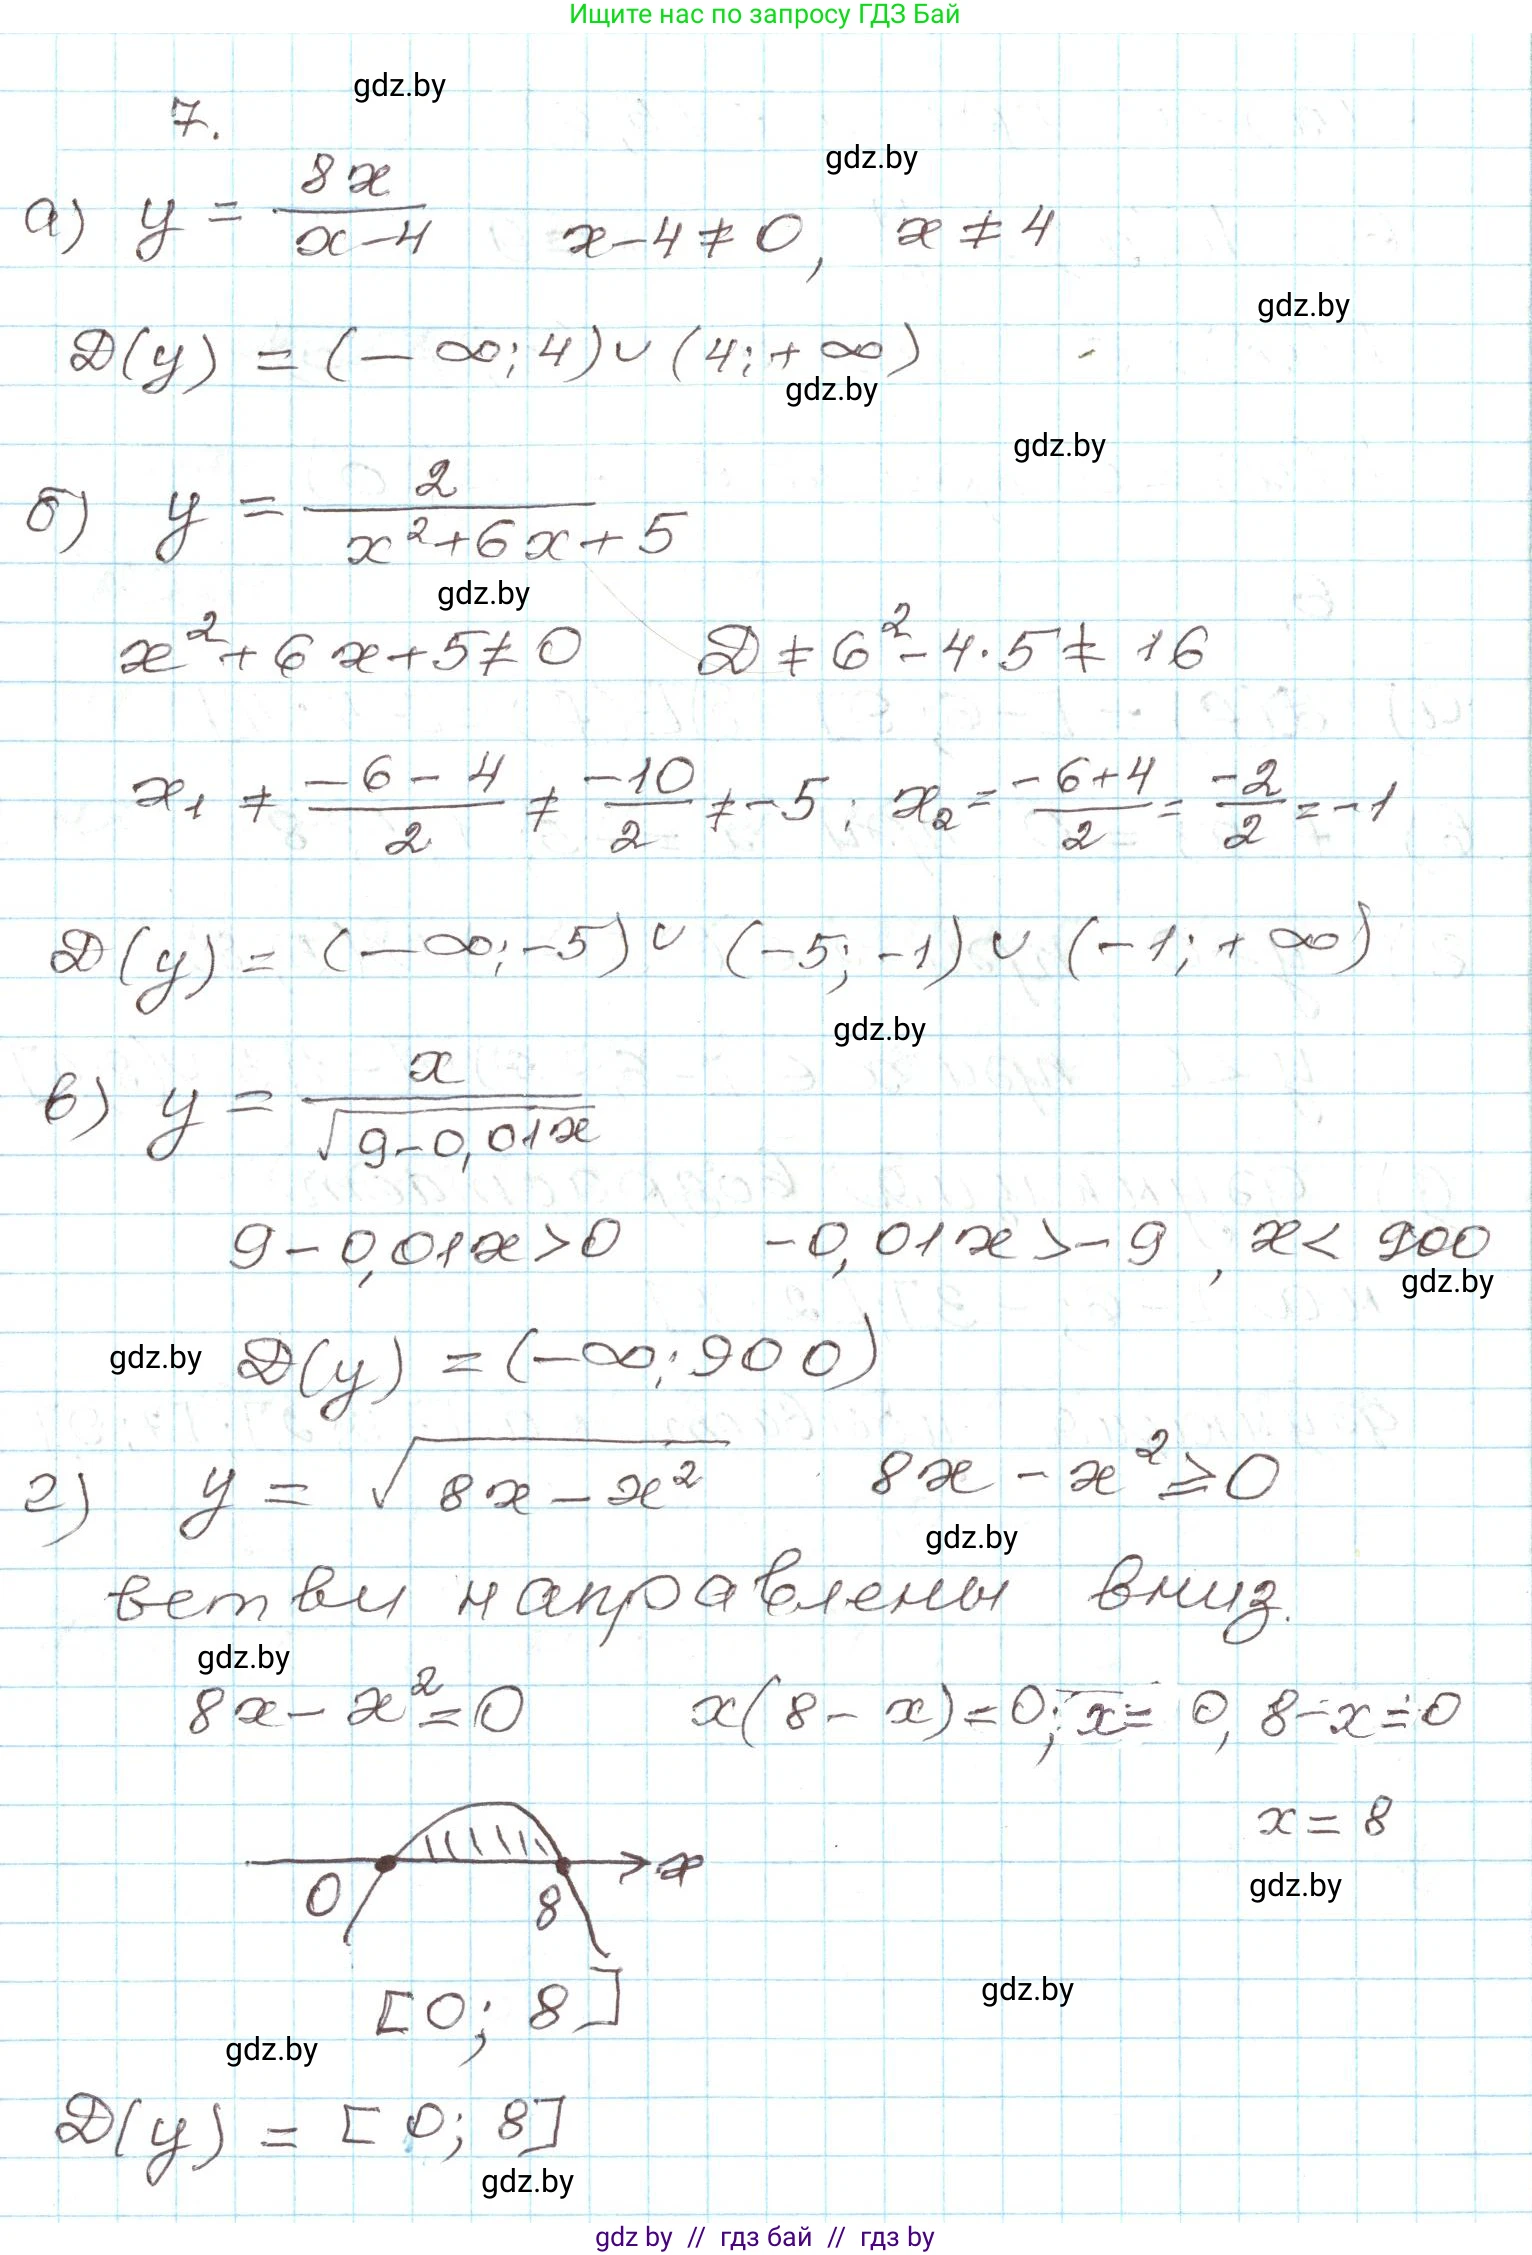 Ищите нас по запросу ГДЗ Бай
gdz.by
7.
gdz.by
а) y = 8x/(x-4) x-4≠0, x≠4
gdz.by
Д(y) = (-∞; 4)∪(4; +∞)
gdz.by
gdz.by
б) y = 2/(x²+6x+5)
gdz.by
x²+6x+5≠0 Д≠6²-4·5≠16
x₁ ≠ (-6-4)/2 ≠ -10/2 ≠ -5; x₂ = (-6+4)/2 = -2/2 = -1
Д(y) = (-∞; -5)∪(-5; -1)∪(-1; +∞)
gdz.by
в) y = x/√(9-0,01x)
9-0,01x>0 -0,01x>-9, x<900
gdz.by
gdz.by
Д(y) = (-∞; 900)
г) y = √(8x-x²) 8x-x²≥0
gdz.by
ветви направлены вниз.
gdz.by
8x-x²=0 x(8-x)=0; x=0, 8-x=0
x=8
x
0 8
gdz.by
[0; 8]
gdz.by
gdz.by
Д(y) = [0; 8]
gdz.by
gdz by // гдз бай // гдз by